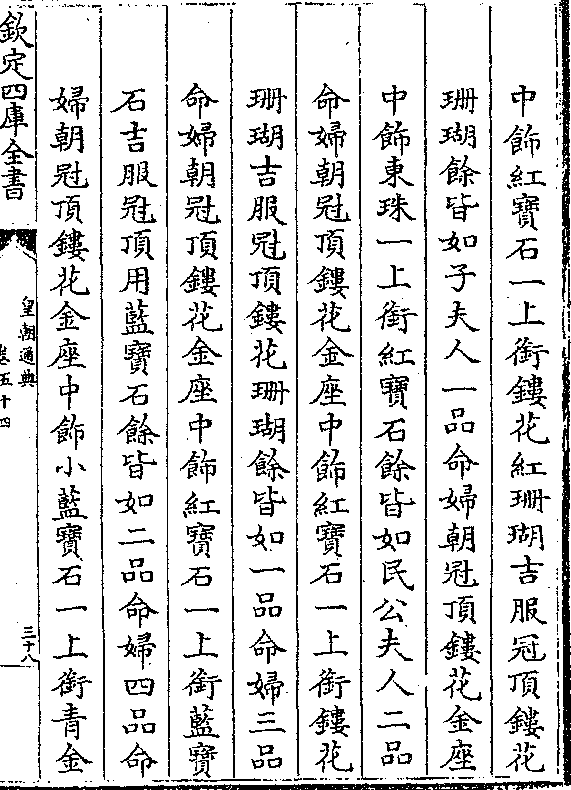 中飾紅寶石一上銜鏤花紅珊瑚吉服冠頂鏤花
珊瑚餘皆如子夫人一品命婦朝冠頂鏤花金座
中飾東珠一上銜紅寶石餘皆如民公夫人二品
命婦朝冠頂鏤花金座中飾紅寶石一上銜鏤花
珊瑚吉服冠頂鏤花珊瑚餘皆如一品命婦三品
命婦朝冠頂鏤花金座中飾紅寶石一上銜藍寶
石吉服冠頂用藍寶石餘皆如二品命婦四品命
婦朝冠頂鏤花金座中飾小藍寶石一上銜青金
欽定四庫全書
皇朝通典
卷五十四
三十八